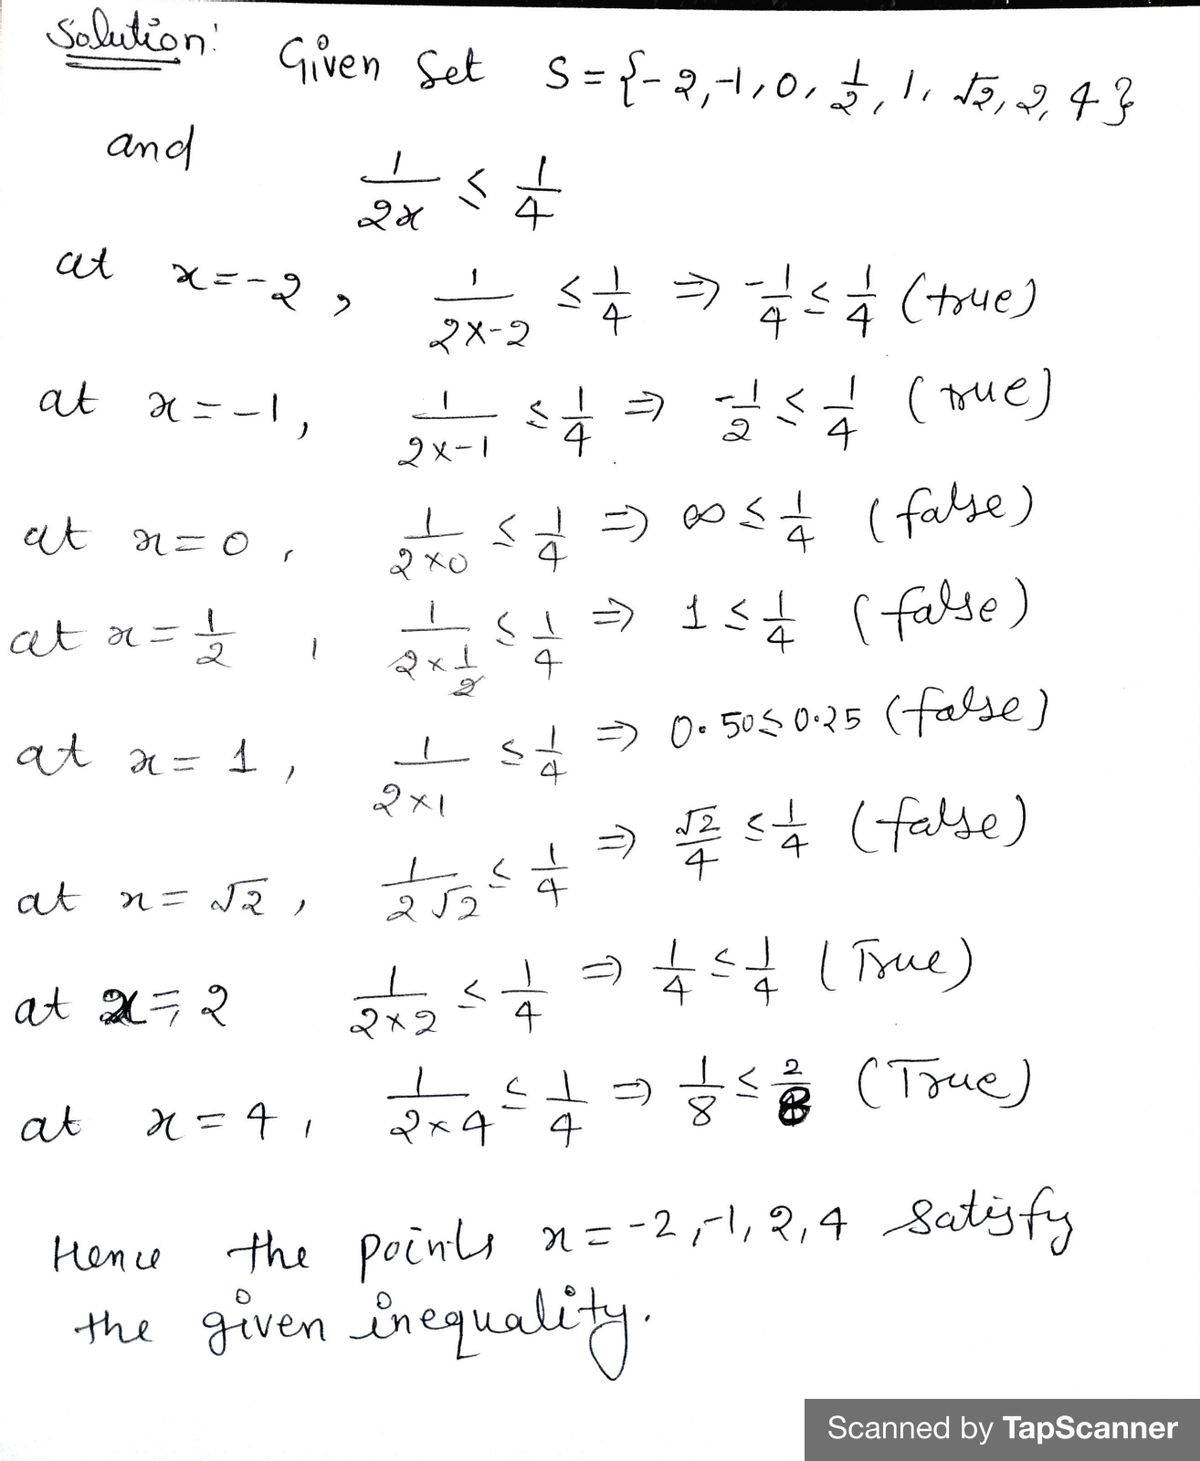 Solution: Given Set S = {-2, -1, 0, 1/2, 1, √2, 2, 4}
and
1/2x ≤ 1/4
at x = -2, 1/2×-2 ≤ 1/4 ⇒ -1/4 ≤ 1/4 (true)
at x = -1, 1/2×-1 ≤ 1/4 ⇒ -1/2 ≤ 1/4 (true)
at x = 0, 1/2×0 ≤ 1/4 ⇒ ∞ ≤ 1/4 (false)
at x = 1/2, 1/2×1/2 ≤ 1/4 ⇒ 1 ≤ 1/4 (false)
at x = 1, 1/2×1 ≤ 1/4 ⇒ 0.50 ≤ 0.25 (false)
at x = √2, 1/2√2 ≤ 1/4 ⇒ √2/4 ≤ 1/4 (false)
at x = 2, 1/2×2 ≤ 1/4 ⇒ 1/4 ≤ 1/4 (True)
at x = 4, 1/2×4 ≤ 1/4 ⇒ 1/8 ≤ 2/8 (True)
Hence the points x = -2, -1, 2, 4 satisfy
the given inequality.
Scanned by TapScanner